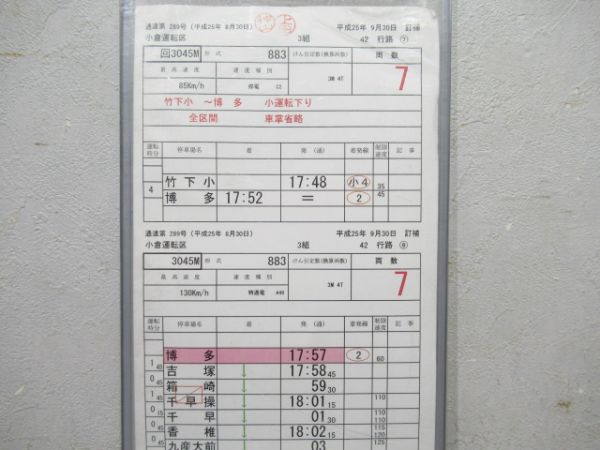 通達第 289号 (平成25年 8月30日) 平成25年 9月30日 訂補
小倉運転区 3組 42 行路 ⑦
回3045M 形式 883 けん引定数(換算両数) 両数
最高速度 速度種別 3M 4T 7
85Km/h 停電
竹下小 ～博多 小運転下り
全区間 車掌省略
運転時分 停車場名 着 発 (通) 着発線 制限速度 記事
竹下小 17:48 小4 35
4
博多 17:52 ＝ 2 45
通達第 289号 (平成25年 8月30日) 平成25年 9月30日 訂補
小倉運転区 3組 42 行路 ⑧
3045M 形式 883 けん引定数(換算両数) 両数
最高速度 速度種別 3M 4T 7
130Km/h 特通電
運転時分 停車場名 着 発 (通) 着発線 制限速度 記事
博多 17:57 2 60
1 45
吉塚 ↓ 17:58 45
0 45
箱崎 ↓ 59 30
1 45
千早操 ↓ 18:01 15 110
0 15
千早 ↓ 01 30 110
0 45
香椎 ↓ 18:02 15 115 120
0 45
九産大前 ↓ 03 125